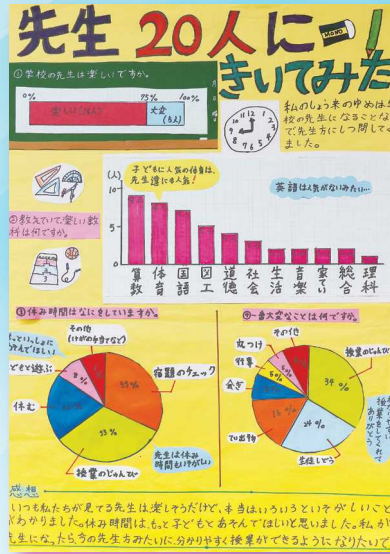 先生20人に
きいてみた!
MONO
①学校の先生は楽しいですか。
0% 75% 100%
楽しい(15人)
大変(5人)
私のしょう来のゆめは
校の先生になることな
で先生方にしつ問して
ました。
②教えていて、楽しい教
科は何ですか。
(人)
10
5
0
子どもに人気の体育は、
先生達にも人気!
英語は人気がないみたい…
算数
体育
国語
図工
道徳
社会
生活
音楽
家てい
総合
理科
③休み時間はなにをしていますか。
その他
(けがの手当てなど)
子どもと遊ぶ
8%
休む
宿題のチェック
33%
授業のじゅんび
先生は休み
時間もいそがしい
④一番大変なことは何ですか。
その他
丸つけ
行事
会ぎ
5%
5%
授業のじゅんび
34%
24%
生徒しどう
16%
てい出物
授業をしてくれて
ありがとう
感想
いつも私たちが見てる先生は楽しそうだけど、本当はいろいろといそがしいこと
がわかりました。休み時間は、もっと子どもとあそんでほしいと思いました。私が
先生になったら、今の先生方みたいに、分かりやすく授業ができるようになりたいで